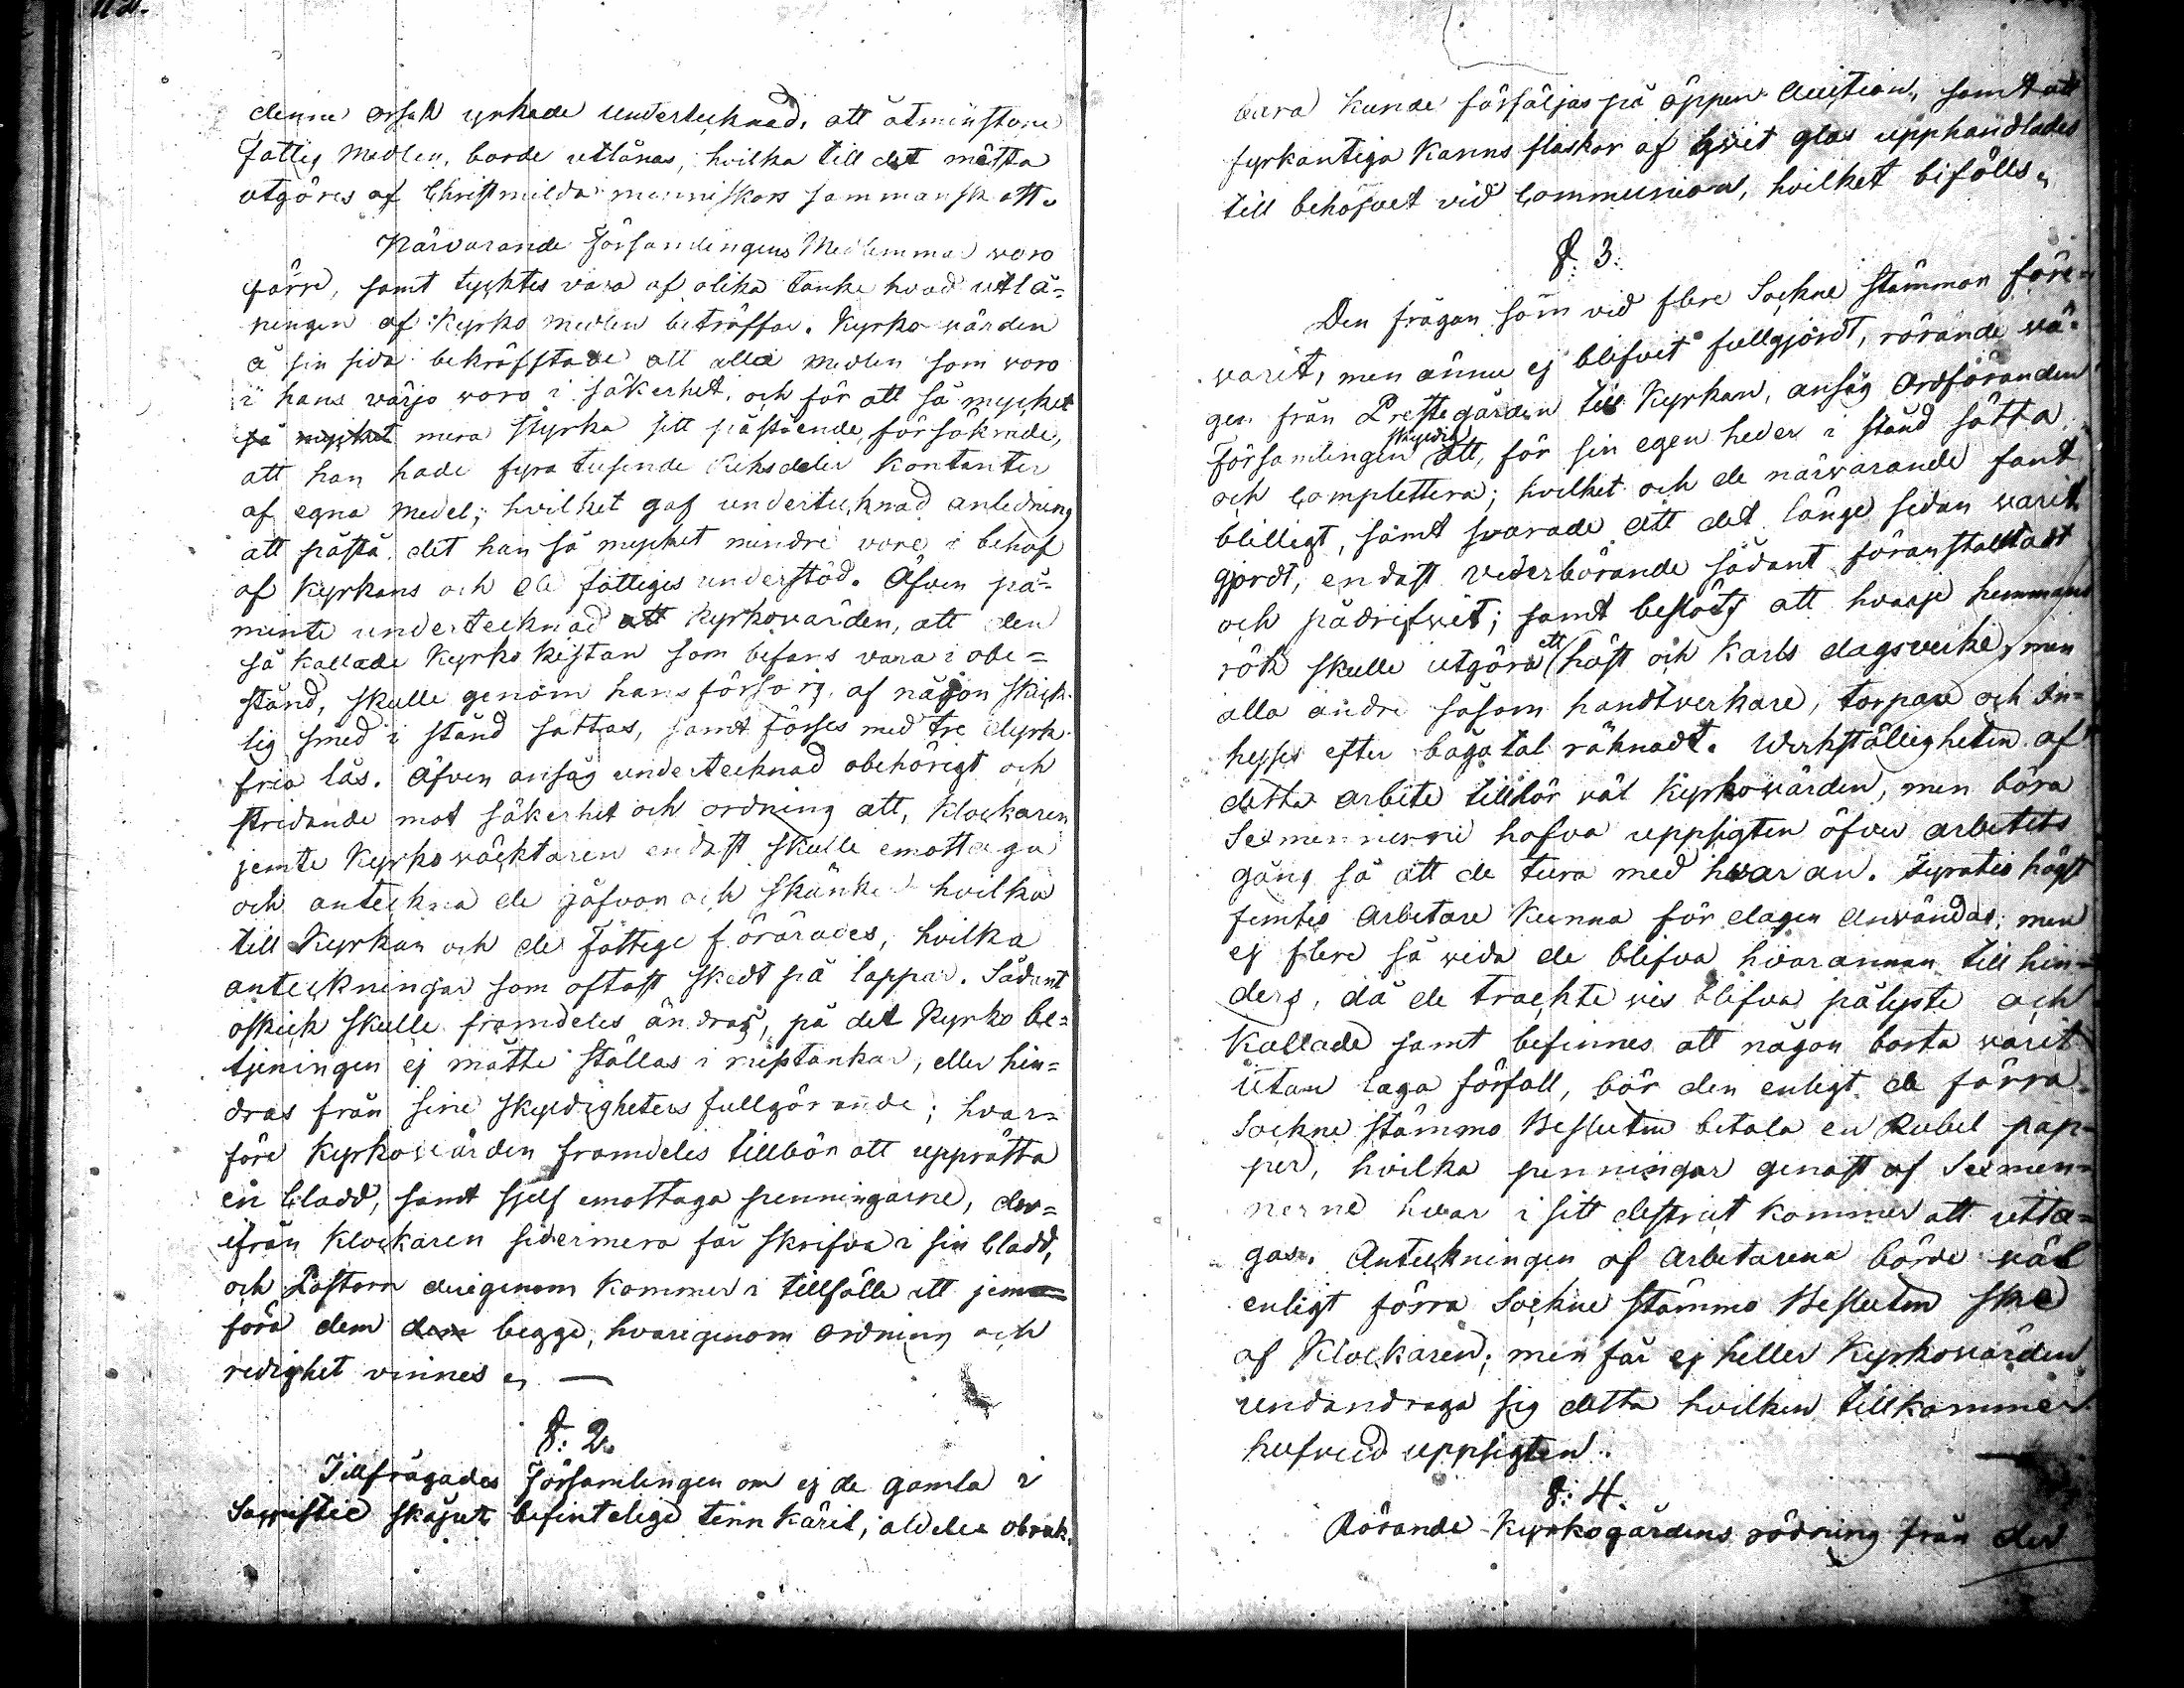 denna orsak yrkade undertecknad, att åtminstone
Fattig Medlen, borde utlånas, hvilka till det mesta
utgöres af Christmilda menniskors sammanskott.
Närvarande Församlingens Medlemmar voro
färre, samt tycktes vara af olika tanke hvad utlå-
ningen af Kyrko medlen beträffar. Kyrko värden
å sin sida bekräfstade att alla medlen som voro
i hans värjo voro i säkerhet, och för att så mycket
så mycket mera styrka sitt påstående, försäkrade,
att han hade fyra tusende Riksdaler Kontanter
af egna medel; hvilket gaf undertecknad anledning
att påstå det han så mycket mindre vore i behof
af Kyrkans och de fattiges understöd. Äfven på-
minte undertecknad att Kyrkovärden, att den
så kallade Kyrko kistan som befans vara i obe-
stånd, skulle genom hans försorg af någon skick-
lig smed i stånd sättas, samt förses med tre dyrk
fria lås. Äfven ansåg undertecknad obehörigt och
stridande mot säkerhet och ordning att, Klockaren
jemte Kyrkoväcktaren endast skulle emottaga
och anteckna de gåfvor och skänker hvilka
till Kyrkan och de Fattige förärades, hvilka
anteckningar som oftast skedt på lappar. Sådant
oskick skulle framdeles ändras, på det Kyrko be-
tjeningen ej måtte ställas i misstankar, eller hin-
dras från sine skyldigheters fullgörande; hvar-
före Kyrkovärden framdeles tillbör att upprätta
en Cladd, samt sjelf emottaga penningarne, der-
ifrån Klockaren sidermera får skrifva i sin Cladd,
och Pastorn derigenom kommer i tillfälle att jem-
föra dem dem begge, hvarigenom ordning och
redighet vinnes. —
§: 2.
Tillfrågades Församlingen om ej de gamla i
Sacristie skåpet befintelige tenn käril, aldeles obruk-
bara kunde försäljas på öppen Auction, samt att
fyrkantiga Kanns flaskor af hvit glas upphandlades
till behofvet vid Communion, hvilket bifölls.
§: 3.
Den frågan som vid flere Sockne stämmor före-
varit, men ännu ej blifvit fullgjordt, rörande vä-
gen från Prestegården till Kyrkan, ansåg Ordföranden
skyldig
Församlingen att, för sin egen heder i stånd sätta
och Complettera; hvilket och de närvarande fant
billigt, samt svarade att det länge sedan varit
gjordt, endast vederbörande sådant föranstalltadt
och pådrifvit; samt beslöts att hvarje hemmans
rök skulle utgöra ett häst och Karls dagsverke, men
alla andre såsom handtverkare, torpare och In-
hyses efter bågatal räknadt. Verkställigheten af
detta arbete tillhör väl Kyrkovärden, men böra
Sexmennerne hafva uppsigten öfver arbetets
gång så att de tura med hvaran. Fyratio högst
femtio Arbetare kunna för dagen användas, men
ej flere så vida de blifva hvarannan till hin-
ders, då de trachte vis blifva pålyste och
Kallade samt befinnes att någon borta varit
utan laga förfall, bör den enligt de förra
Sockne stämmo Besluten betala en Rubel pap-
per, hvilka penningar genast af Sexmen-
nerne hvar i sitt district kommer att utta-
gas. Anteckningen af Arbetarena börde väl
enligt förra Sockne stämmo Besluten ske
af Klockaren; men får ej heller Kyrkovärden
undandraga sig detta hvilken tillkommer
hufvud uppsigten. —
§: 4.
Rörande Kyrkogårdens rödning från der